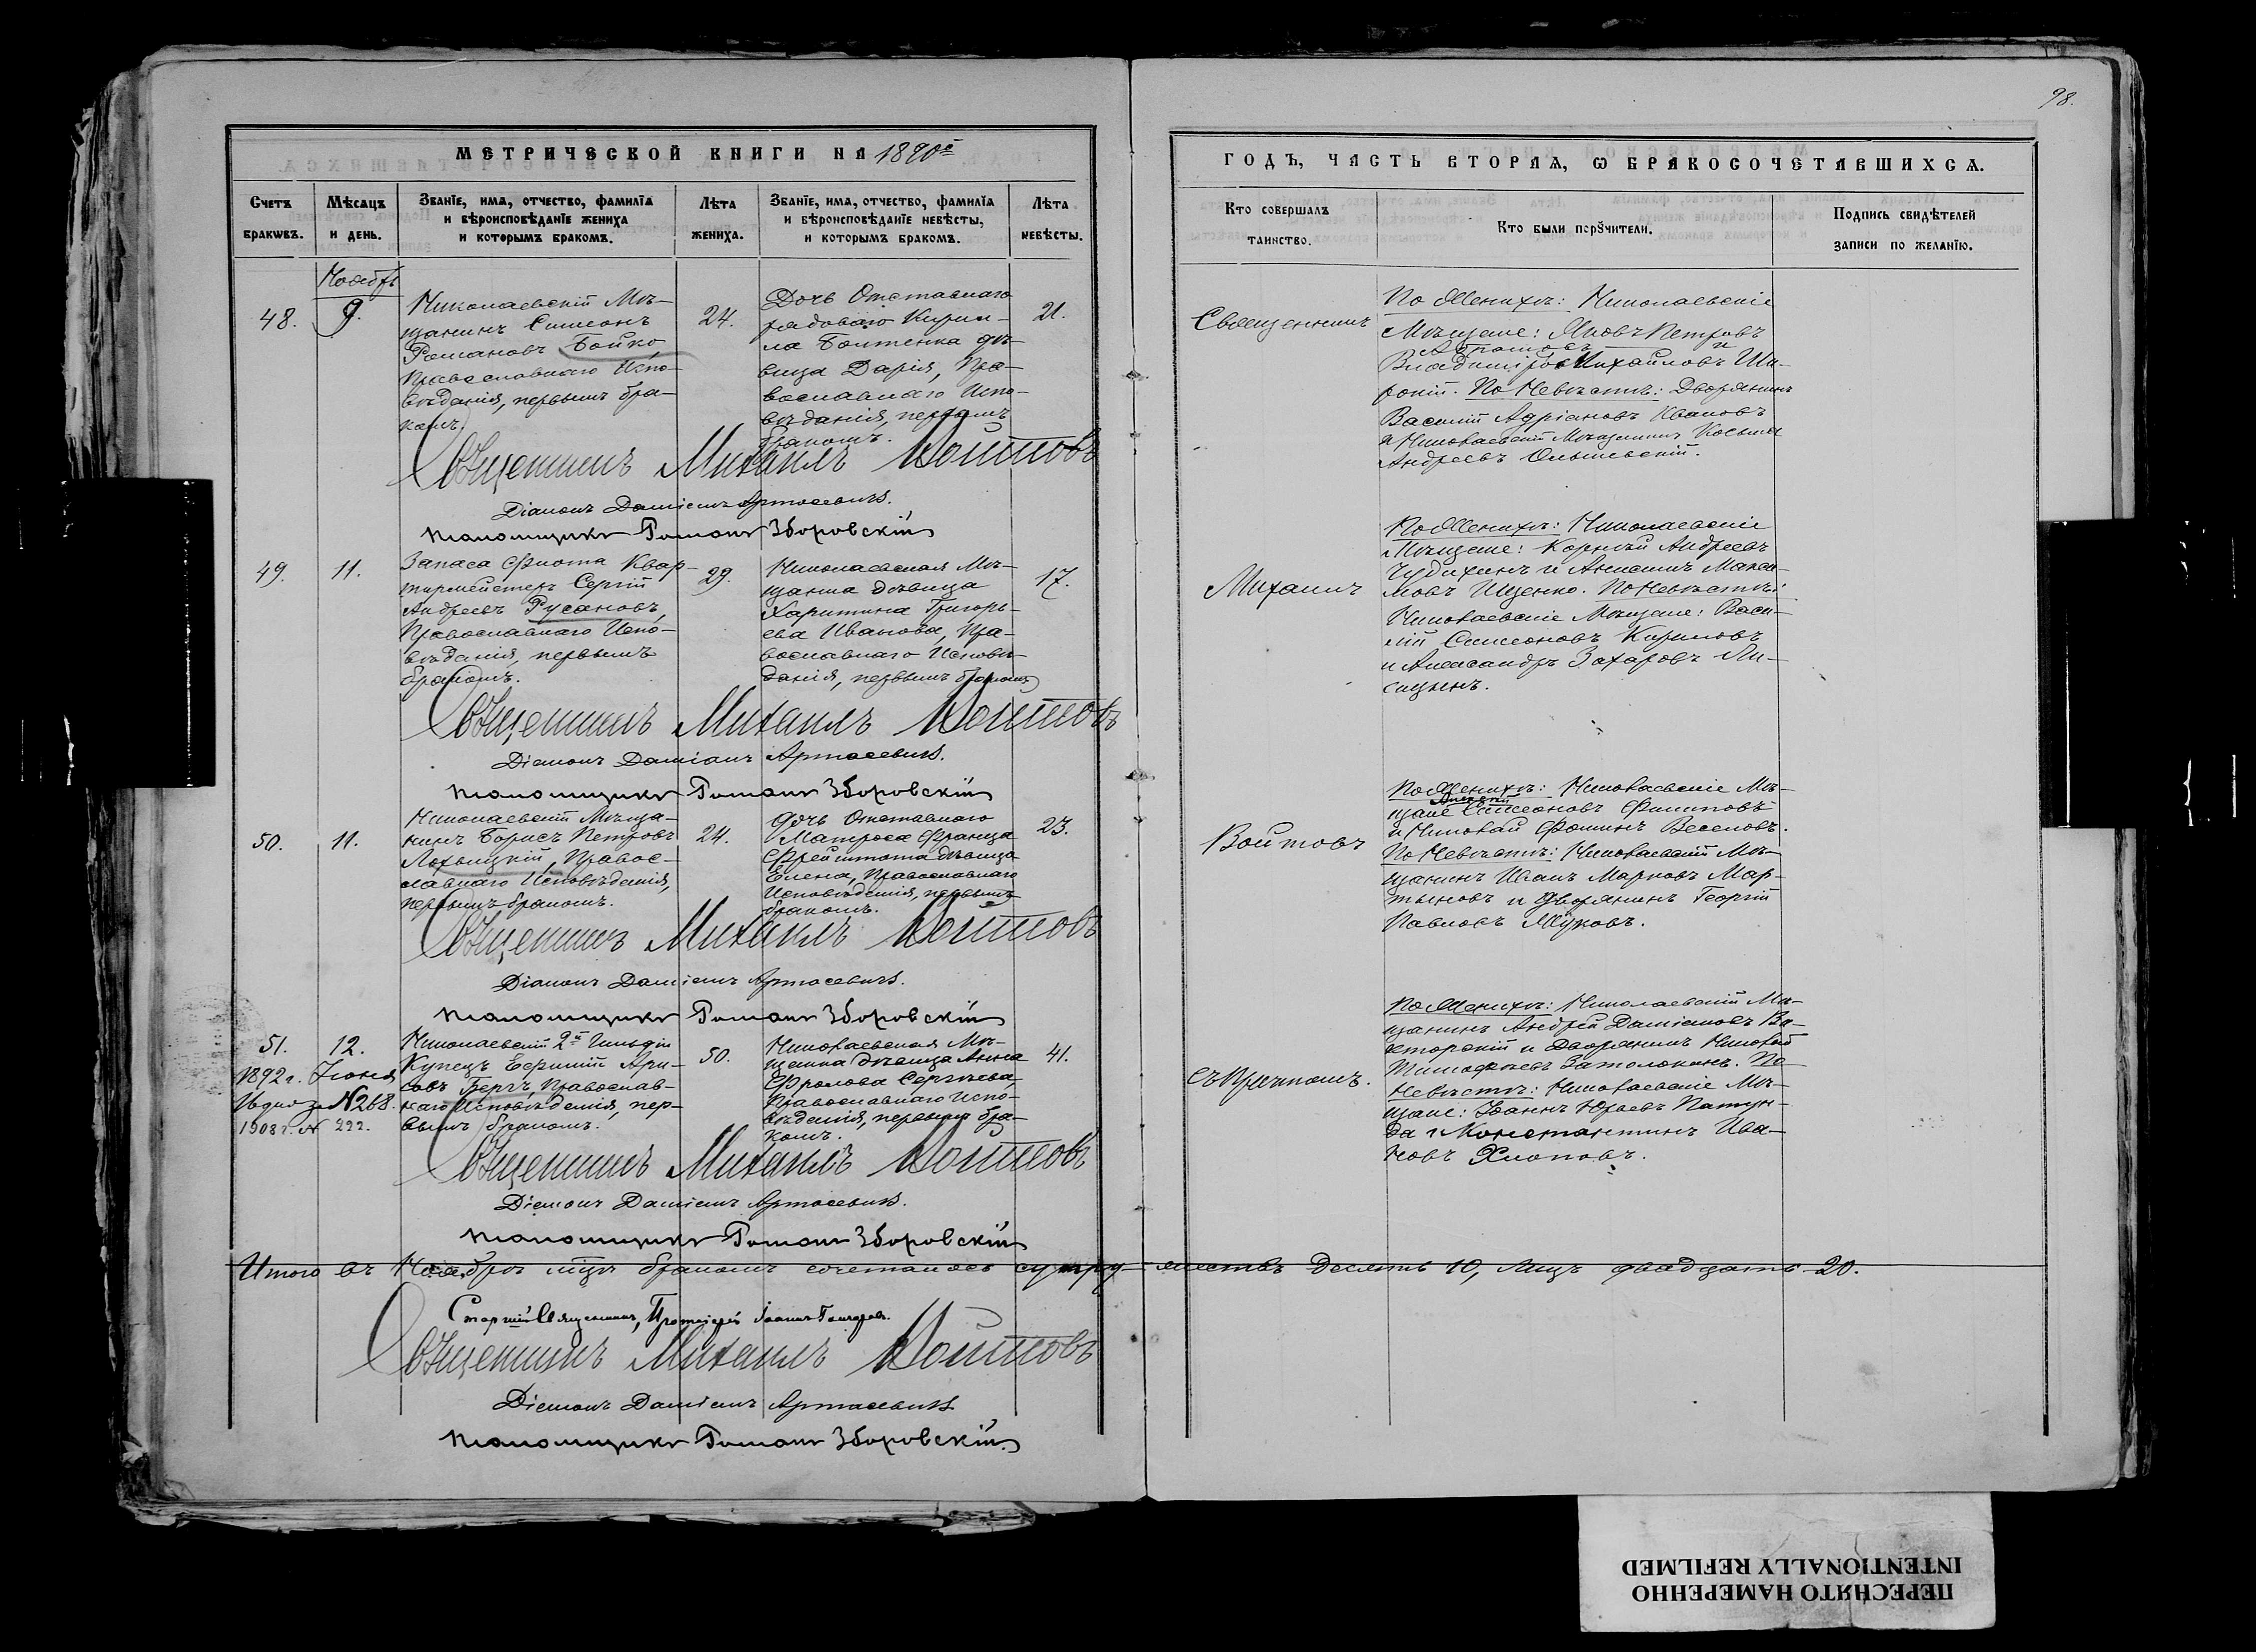 98.
МЕТРИЧЕСКОЙ КНИГИ НА 1890й
ГОДЪ, ЧАСТЬ ВТОРАѦ, Ѡ БРАКОСОЧЕТАВШИХСѦ.
Счетъ браковъ.
Мѣсяцъ и день.
Званїе, имѧ, отчество, фамилїѧ
и вѣроисповѣданїе жениха
и которымъ бракомъ.
Лѣта жениха.
Званїе, имѧ, отчество, фамилїѧ
и вѣроисповѣданїе невѣсты,
и которымъ бракомъ.
Лѣта невѣсты.
Кто совершалъ
таинство.
Кто были порꙋчители.
Подпись свидѣтелей
записи по желанїю.
Ноябрь
48.
9.
Николаевскій Мѣ-
щанинъ Симеонъ
Романовъ Бойко
Православнаго Испо-
вѣданія, первымъ бра-
комъ
24.
Дочь Отставнаго
рядоваго Кирил-
ла Войтенка дѣ-
вица Дарія, Пра-
вославнаго Испо-
вѣданія, первымъ
бракомъ.
21.
Священникъ
По Женихѣ: Николаевскіе
Мѣщане: Яковъ Петровъ
и
Владиміръ Михайловъ
По Невѣстѣ: Дворянинъ
Василій Адріановъ Ивановъ
и Николаевскій Мѣщанинъ Косьма
Андреевъ Ольшевскій.
Священникъ Михаилъ Войтовъ
Діаконъ Даміанъ Артасевичъ.
Псаломщикъ Романъ Зборовскій
49.
11.
Запаса Флота Квар-
тирмейстеръ Сергій
Андреевъ Русановъ,
Православнаго Испо-
вѣданія, первымъ
бракомъ.
29.
Николаевская Мѣ-
щанка дѣвица
Харитина Григорь-
ева Иванова, Пра-
вославнаго Исповѣ-
данія, первымъ бракомъ
17.
Михаилъ
По Женихѣ: Николаевскіе
Мѣщане: Корнилій Андреевъ
Чудихинъ и Анисимъ Макси-
мовъ Ищенко. По Невѣстѣ:
Николаевскіе Мѣщане: Васи-
лій Симеоновъ Кириловъ
и Александръ Захаровъ Ли-
сицынъ.
Священникъ Михаилъ Войтовъ
Діаконъ Даміанъ Артасевичъ.
Псаломщикъ Романъ Зборовскій
50.
11.
Николаевскій Мѣща-
нинъ Борисъ Петровъ
Лохвицкій, Правос-
лавнаго Исповѣданія,
первымъ бракомъ.
24.
дочь Отставнаго
Матроса Франца
дѣвица
Елена, Православнаго
Исповѣданія, первымъ
бракомъ.
23.
Войтовъ
По Женихѣ: Николаевскіе Мѣ-
щане Симеоновъ Филиповъ
и Николай Фоминъ Веселовъ.
По Невѣстѣ: Николаевскій Мѣ-
щанинъ Иванъ Марковъ Мар-
тыновъ и Дворянинъ Георгій
Павловъ Жуковъ.
Священникъ Михаилъ Войтовъ
Діаконъ Даміанъ Артасевичъ.
Псаломщикъ Романъ Зборовскій
51.
12.
1892 г. Іюня
Выдно за №268.
1908 г. № 222.
Николаевскій 2й Гильдіи
Купецъ Ефимій
Бергъ, Православ-
наго Исповѣданія, пер-
вымъ бракомъ.
50.
Николаевская Мѣ-
щанка дѣвица Анна
Фролова Сергѣева,
Православнаго Испо-
вѣданія, первымъ бра-
комъ.
41.
съ Причтомъ.
По Женихѣ: Николаевскій Мѣ-
щанинъ Андрей Даміановъ
и Дворянинъ Николай
Тимофеевъ Затолокинъ. По
Невѣстѣ: Николаевскіе Мѣ-
щане: Іоаннъ Юрьевъ
и Константинъ Ива-
новъ Хлоповъ.
Священникъ Михаилъ Войтовъ
Діаконъ Даміанъ Артасевичъ.
Псаломщикъ Романъ Зборовскій
Итого въ Ноябрѣ мцѣ бракомъ сочеталось супружествъ десять 10, лицъ двадцать 20.
Старшій Священникъ, Протоіерей Іоаннъ Гончаровъ.
Священникъ Михаилъ Войтовъ
Діаконъ Даміанъ Артасевичъ
Псаломщикъ Романъ Зборовскій.
ПЕРЕСНЯТО НАМЕРЕННО
INTENTIONALLY REFILMED